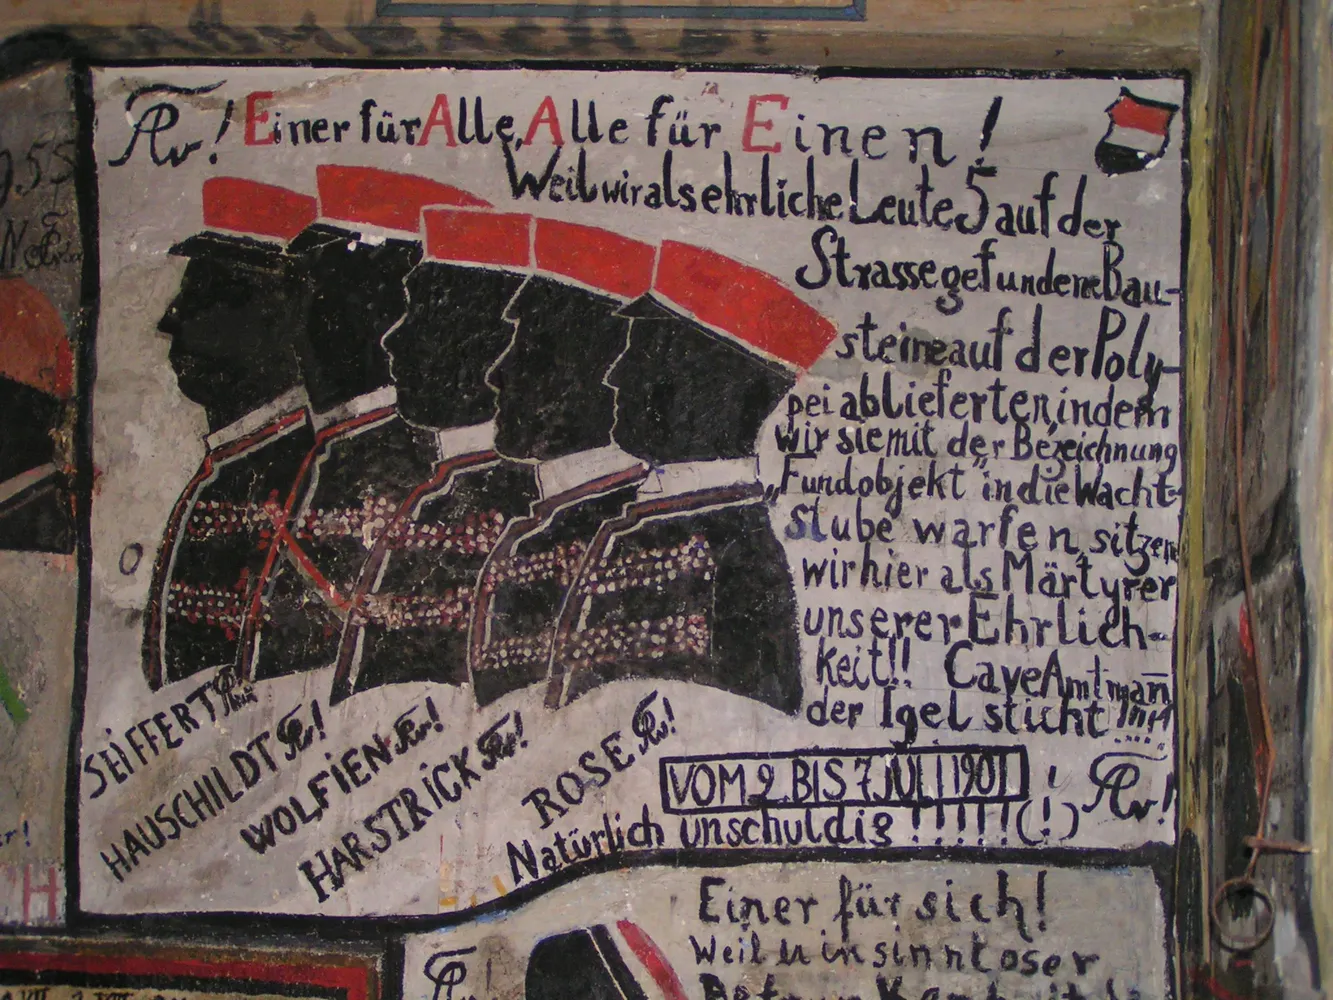 ! Einer für Alle, Alle für Einen!
Weil wir als ehrliche Leute 5 auf der
Strasse gefundene Bau-
steine auf der Poly-
pei ablieferten, indem
wir sie mit der Bezeichnung
„Fundobjekt" in die Wacht-
stube warfen, sitzen
wir hier als Märtyrer
unserer Ehrlich-
keit!! Cave Amtman
der Igel sticht !!!!
SEIFFERT
HAUSCHILDT !
WOLFIEN !
HARSTRICK !
ROSE !
VOM 2. BIS 7 JULI 1901 !
Natürlich unschuldig !!!!!(!)
Einer für sich!
Weil er in sinnloser